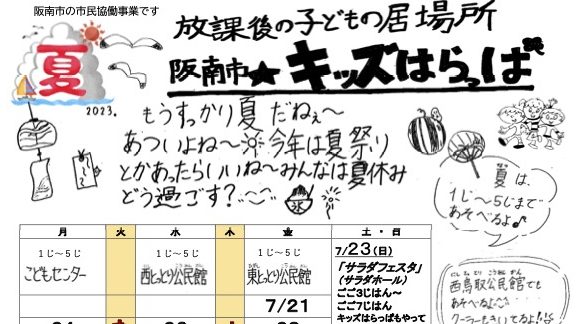 阪南市の市民協働事業です
放課後の子どもの居場所
阪南市★キッズはらっぱ
夏
2023.
もうすっかり夏だねぇ〜
あついよね〜☀今年は夏祭り
とかあったらいいね〜みんなは夏休み
どう過ごす?
氷
夏は、
1じ〜5じまで
あそべるよ♪
月 火 水 木 金 土・日
1じ〜5じ 1じ〜5じ 1じ〜5じ
こどもセンター 西とっとり公民館 東とっとり公民館
7/21
7/23(日)
「サラダフェスタ」
(サラダホール)
ごご3じはん〜
ごご7じはん
キッズはらっぱもやって
西鳥取公民館でも
あそべるよ
クーラーもきいてるよ!!